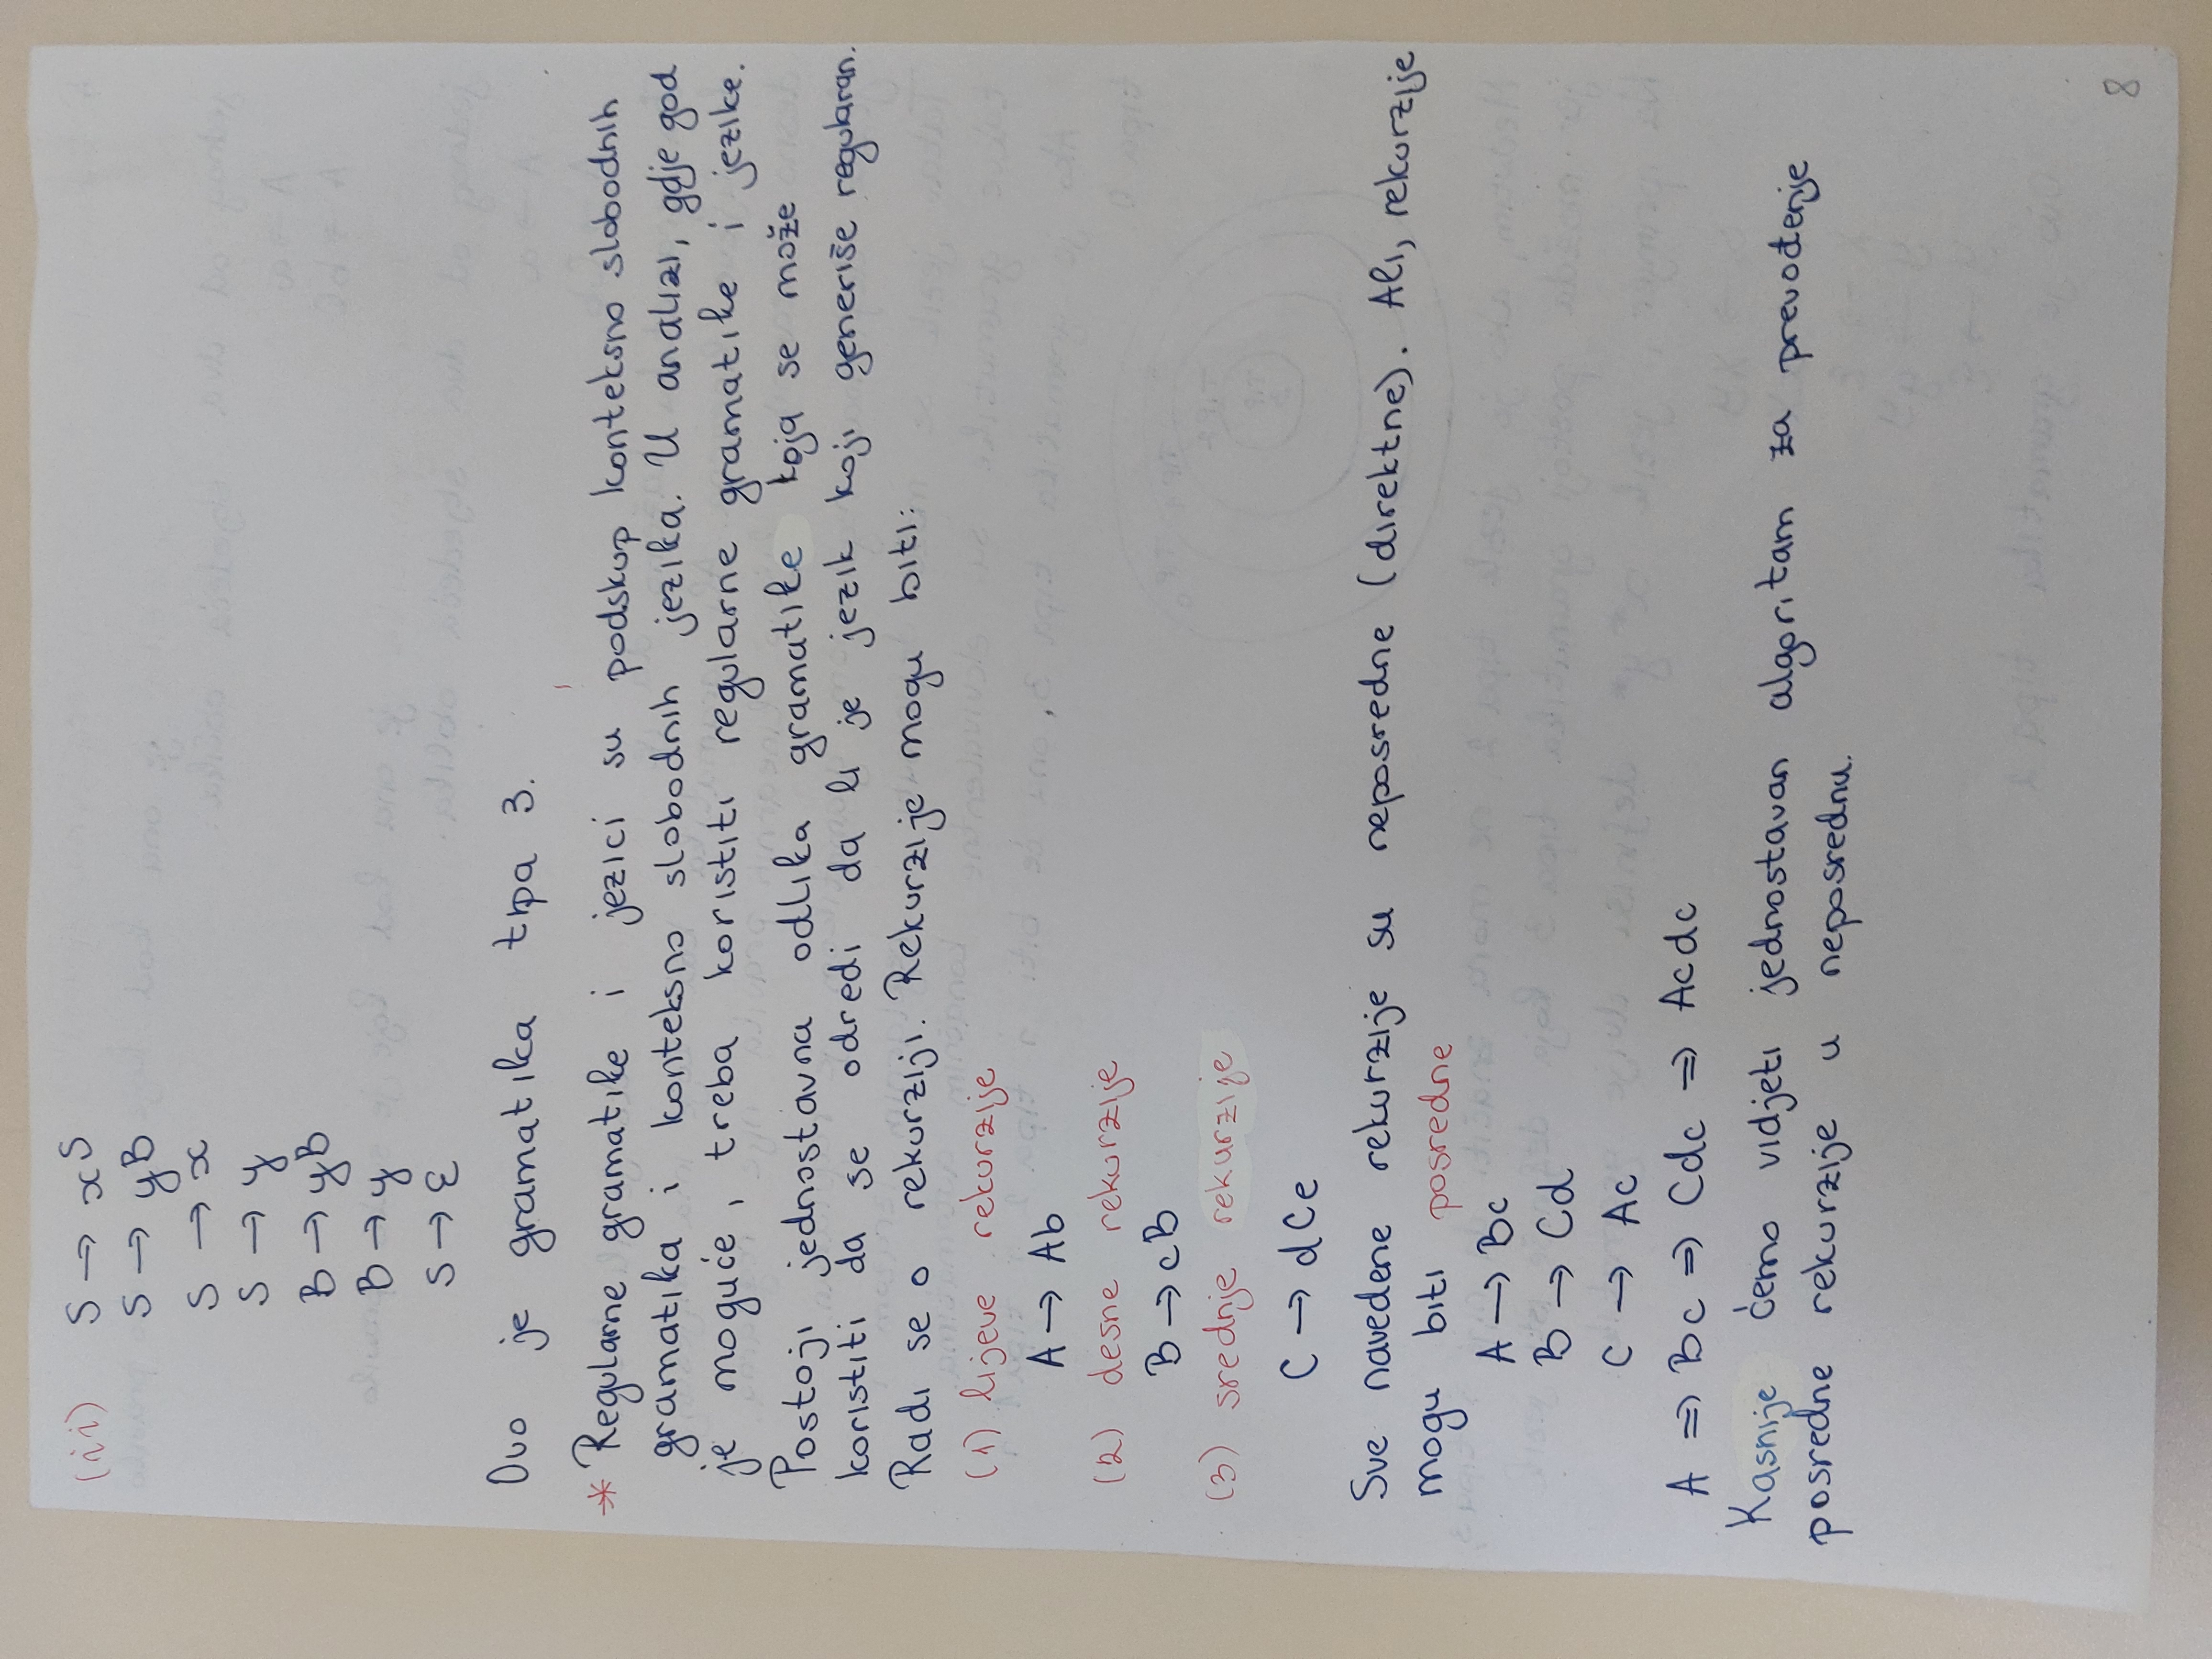 (ii) S → xS
S → yB
S → x
S → y
B → yB
B → y
S → ε
Ovo je gramatika tipa 3.
* Regularne gramatike i jezici su podskup konteksno slobodnih
gramatika i konteksno slobodnih jezika. U analizi, gdje god
je moguće, treba koristiti regularne gramatike i jezike.
Postoji jednostavna odlika gramatike koja se može
koristiti da se odredi da li je jezik koji generiše regularan.
Radi se o rekurziji. Rekurzije mogu biti:
(1) lijeve rekurzije
A → Ab
(2) desne rekurzije
B → cB
(3) srednje rekurzije
C → dCe
Sve navedene rekurzije su neposredne (direktne). Ali, rekurzije
mogu biti posredne
A → Bc
B → Cd
C → Ac
A ⇒ Bc ⇒ Cdc ⇒ Acdc
Kasnije ćemo vidjeti jednostavan algoritam za prevođenje
posredne rekurzije u neposrednu.
8